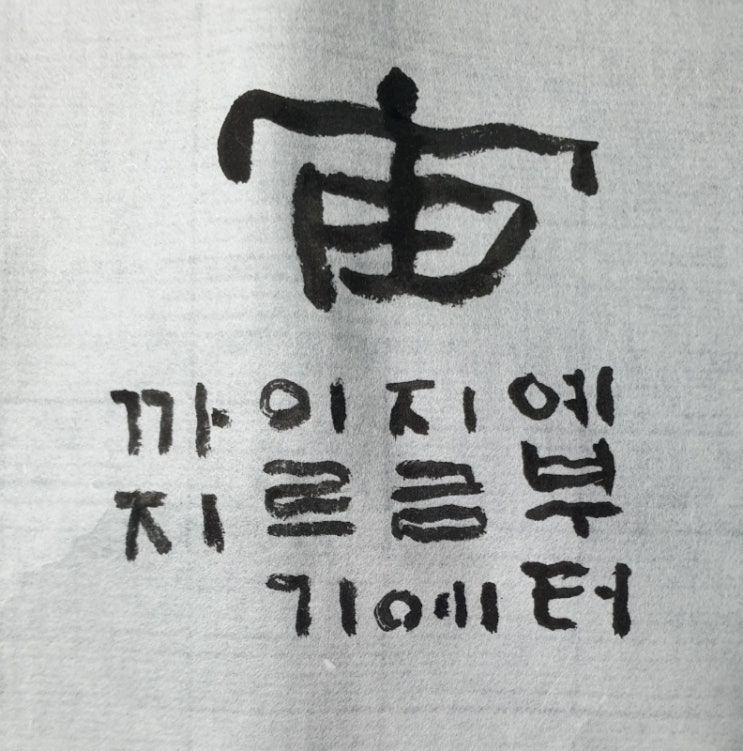 宙
예부터
지금에
이르기
까지